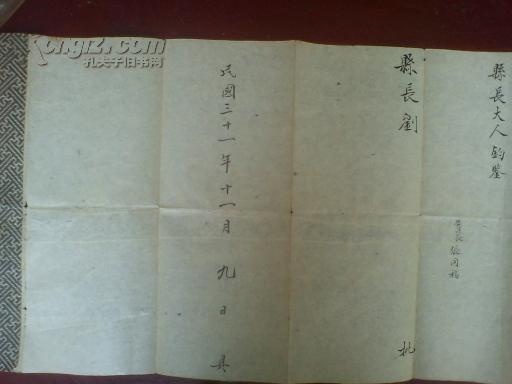 縣長大人鈞鑒
張同福
縣長劉 批
民國三十一年十一月九日具
kongfz.com
孔夫子旧书网